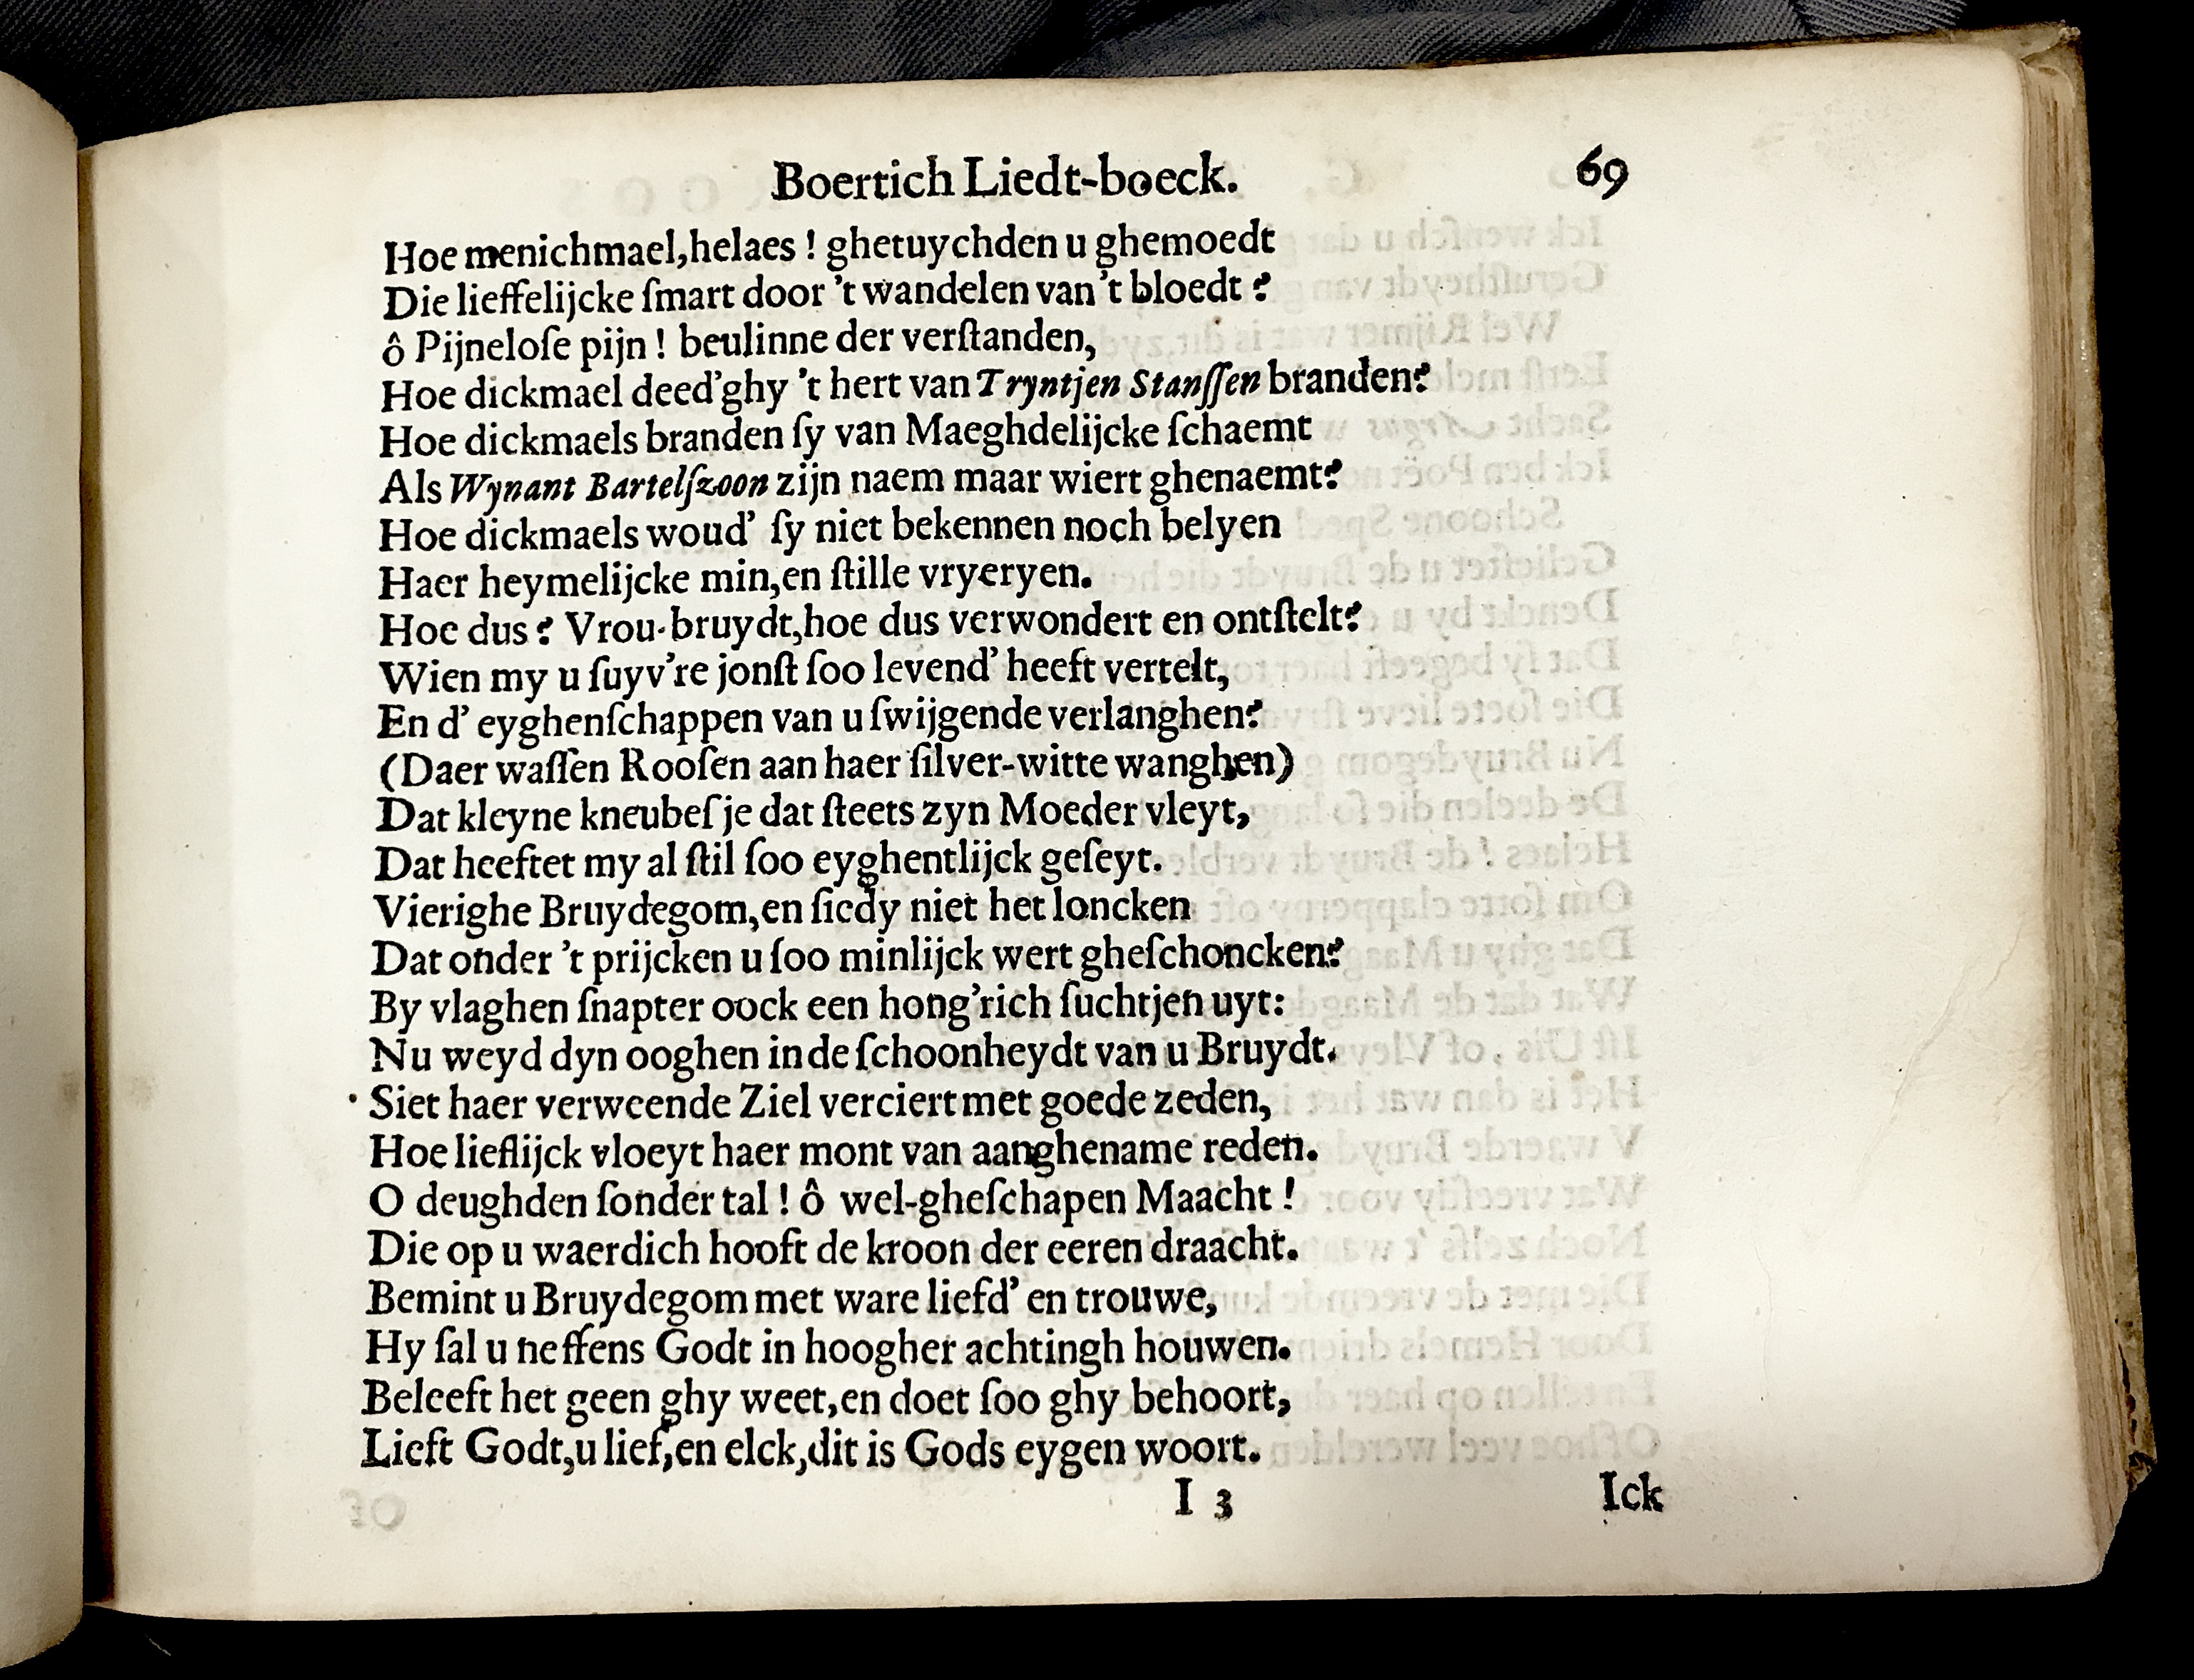 Boertich Liedt-boeck. 69
Hoe menichmael,helaes ! ghetuychden u ghemoedt
Die lieffelijcke ſmart door 't wandelen van't bloedt ?
ô Pijneloſe pijn ! beulinne der verſtanden,
Hoe dickmael deed'ghy 't hert van Tryntjen Stanſſen branden?
Hoe dickmaels branden ſy van Maeghdelijcke ſchaemt
Als Wynant Bartelſzoon zijn naem maar wiert ghenaemt?
Hoe dickmaels woud' ſy niet bekennen noch belyen
Haer heymelijcke min,en ſtille vryeryen.
Hoe dus ? Vrou-bruydt,hoe dus verwondert en ontſtelt?
Wien my u ſuyv're jonſt ſoo levend' heeft vertelt,
En d' eyghenſchappen van u ſwijgende verlanghen?
(Daer waſſen Rooſen aan haer ſilver-witte wanghen)
Dat kleyne kneubeſje dat ſteets zyn Moeder vleyt,
Dat heeftet my al ſtil ſoo eyghentlijck geſeyt.
Vierighe Bruydegom,en ſiedy niet het loncken
Dat onder 't prijcken u ſoo minlijck wert gheſchoncken?
By vlaghen ſnapter oock een hong'rich ſuchtjen uyt:
Nu weyd dyn ooghen in de ſchoonheydt van u Bruydt.
Siet haer verweende Ziel verciert met goede zeden,
Hoe lieflijck vloeyt haer mont van aanghename reden.
O deughden ſonder tal ! ô wel-gheſchapen Maacht !
Die op u waerdich hooft de kroon der eeren draacht.
Bemint u Bruydegom met ware liefd' en trouwe,
Hy ſal u neffens Godt in hoogher achtingh houwen.
Beleeft het geen ghy weet,en doet ſoo ghy behoort,
Lieft Godt,u lief,en elck,dit is Gods eygen woort.
I 3 Ick